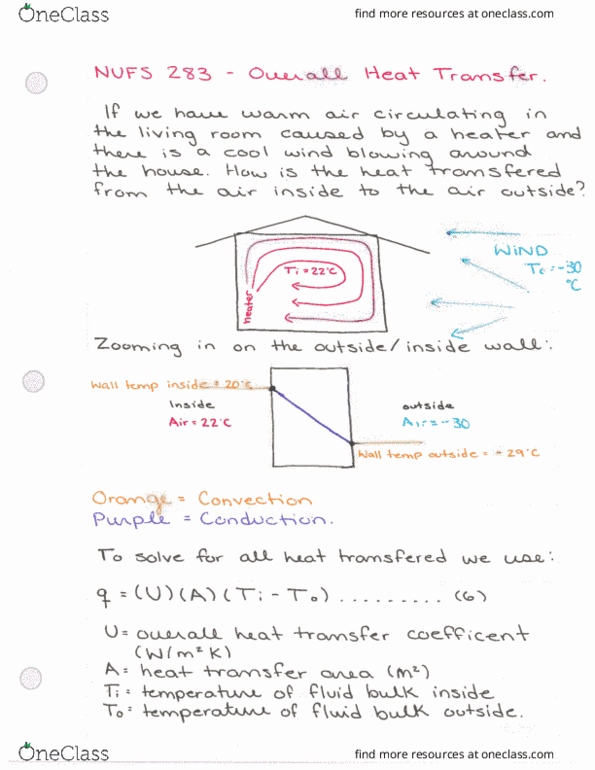 OneClass
find more resources at oneclass.com
NUFS 283 - Overall Heat Transfer.
If we have warm air circulating in
the living room caused by a heater and
there is a cool wind blowing around
the house. How is the heat transfered
from the air inside to the air outside?
heater
Ti = 22°C
WIND
To = -30
°C
Zooming in on the outside/inside wall:
Wall temp inside = 20°C
Inside
Air = 22°C
outside
Air = -30
Wall temp outside = - 29°C
Orange = Convection
Purple = Conduction.
To solve for all heat transfered we use:
q = (U)(A)(Ti - To) .......... (6)
U = overall heat transfer coefficent
(W/m²K)
A = heat transfer area (m²)
Ti = temperature of fluid bulk inside
To = temperature of fluid bulk outside.
OneClass
find more resources at oneclass.com